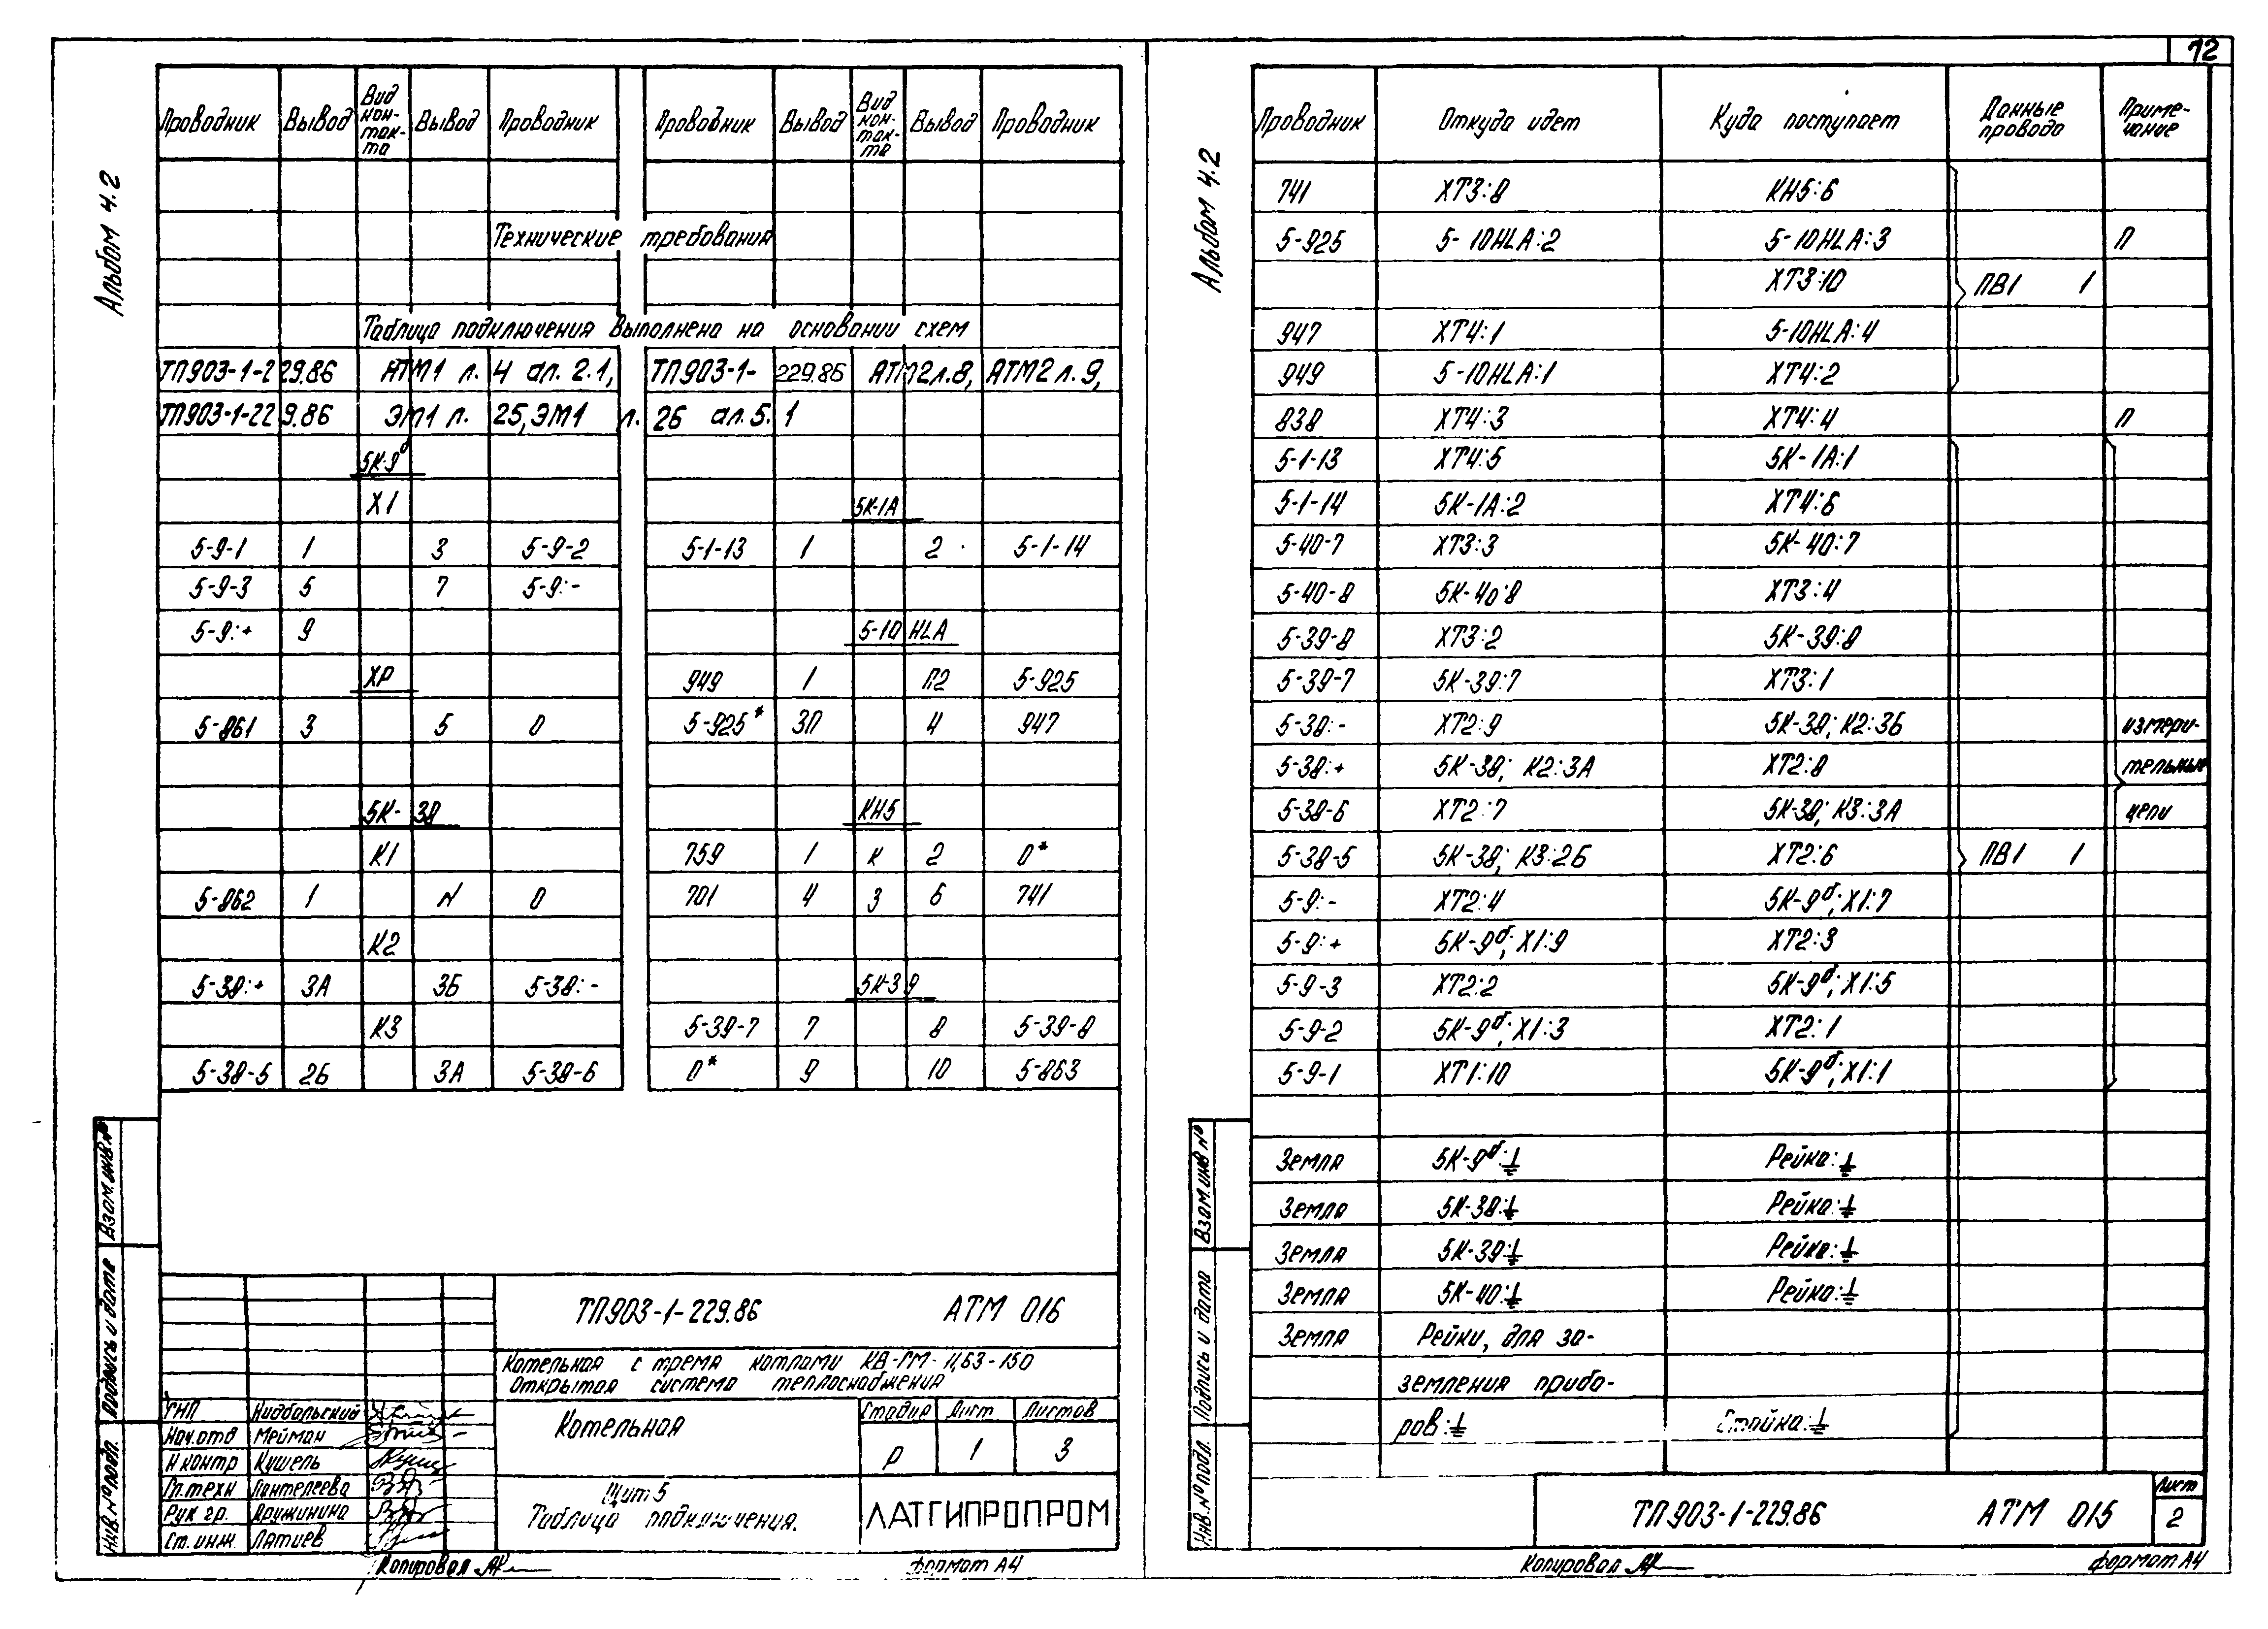 12
Альбом 4.2
Проводник Вывод Вид кон-так-та Вывод Проводник Проводник Вывод Вид кон-так-та Вывод Проводник
Технические требования
Таблица подключения выполнена на основании схем
ТП903-1-229.86 АТМ1 л. 4 ал. 2.1, ТП903-1-229.86 АТМ2л.8, АТМ2 л.9,
ТП903-1-229.86 ЭМ1 л. 25, ЭМ1 л. 26 ал.5.1
5К-9б
Х1 5К-1А
5-9-1 1 3 5-9-2 5-1-13 1 2 5-1-14
5-9-3 5 7 5-9:-
5-9:+ 9 5-10 HLA
ХР 949 1 П2 5-925
5-861 3 5 0 5-925* 3П 4 947
5К-38 КН5
К1 759 1 К 2 0*
5-862 1 N 0 701 4 З 6 741
К2
5-38:+ 3А 3Б 5-38:- 5К-39
К3 5-39-7 7 8 5-39-8
5-38-5 2Б 3А 5-38-6 0* 9 10 5-863
Взам.инв.№
Подпись и дата
Инв.№подл.
ТП903-1-229.86 АТМ 016
Котельная с тремя котлами КВ-ГМ-11,63-150
Открытая система теплоснабжения
ГИП Нидбальский
Нач.отд Мейман
Н контр Кушель
Гл.техн Пантелеева
Рук гр. Дружинина
Ст.инж. Латиев
Котельная
Стадия Лист Листов
Р 1 3
Щит 5
Таблица подключения.
ЛАТГИПРОПРОМ
Копировал
формат А4
Альбом 4.2
Проводник Откуда идет Куда поступает Данные провода Приме-чание
741 ХТ3:8 КН5:6
5-925 5-10HLA:2 5-10HLA:3 П
ХТ3:10 ПВ1 1
947 ХТ4:1 5-10HLA:4
949 5-10HLA:1 ХТ4:2
838 ХТ4:3 ХТ4:4 П
5-1-13 ХТ4:5 5К-1А:1
5-1-14 5К-1А:2 ХТ4:6
5-40-7 ХТ3:3 5К-40:7
5-40-8 5К-40:8 ХТ3:4
5-39-8 ХТ3:2 5К-39:8
5-39-7 5К-39:7 ХТ3:1
5-38:- ХТ2:9 5К-38; К2:3Б измери-
5-38:+ 5К-38; К2:3А ХТ2:8 тельные
5-38-6 ХТ2:7 5К-38; К3:3А цепи
5-38-5 5К-38; К3:2Б ХТ2:6 ПВ1 1
5-9:- ХТ2:4 5К-9б; Х1:7
5-9:+ 5К-9б; Х1:9 ХТ2:3
5-9-3 ХТ2:2 5К-9б; Х1:5
5-9-2 5К-9б; Х1:3 ХТ2:1
5-9-1 ХТ1:10 5К-9б; Х1:1
Земля 5К-9б:⏚ Рейка:⏚
Земля 5К-38:⏚ Рейка:⏚
Земля 5К-39:⏚ Рейка:⏚
Земля 5К-40:⏚ Рейка:⏚
Земля Рейки, для за-
земления прибо-
ров:⏚ Стойка:⏚
Взам.инв №
Подпись и дата
Инв.№подл.
ТП903-1-229.86 АТМ 015
Лист
2
Копировал
формат А4